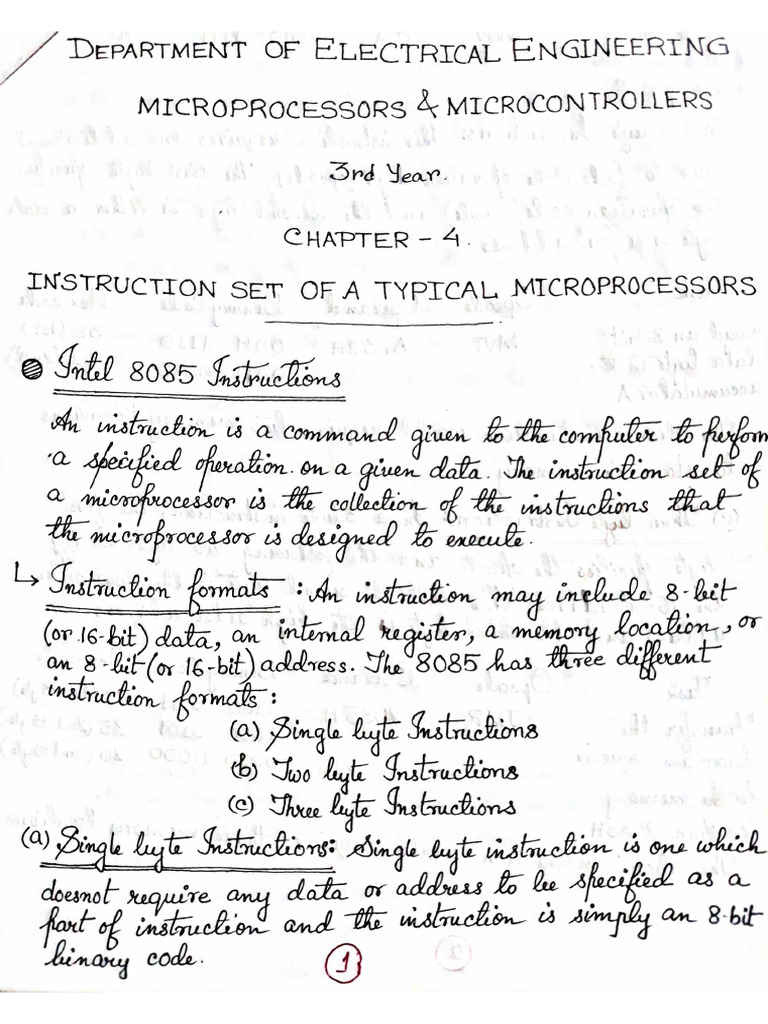 DEPARTMENT OF ELECTRICAL ENGINEERING
MICROPROCESSORS & MICROCONTROLLERS
3rd Year.
CHAPTER - 4.
INSTRUCTION SET OF A TYPICAL MICROPROCESSORS
Intel 8085 Instructions
An instruction is a command given to the computer to perform
a specified operation on a given data. The instruction set of
a microprocessor is the collection of the instructions that
the microprocessor is designed to execute.
↳ Instruction formats : An instruction may include 8-bit
(or 16-bit) data, an internal register, a memory location, or
an 8-bit (or 16-bit) address. The 8085 has three different
instruction formats :
(a) Single byte Instructions
(b) Two byte Instructions
(c) Three byte Instructions
(a) Single byte Instructions: Single byte instruction is one which
doesnot require any data or address to be specified as a
part of instruction and the instruction is simply an 8-bit
binary code.
1